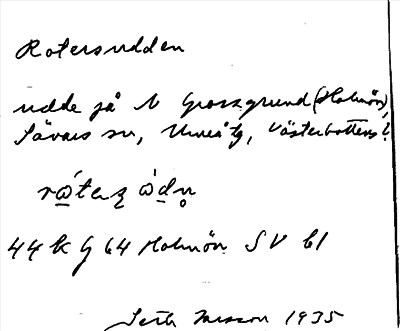 Rotersudden
udde på N Grossgrund (Holmön),
Sävars sn, Umeå tg, Västerbottens l.
rώ̲tez ὼdn̥
44 k G 64 Holmön SV bl
1935